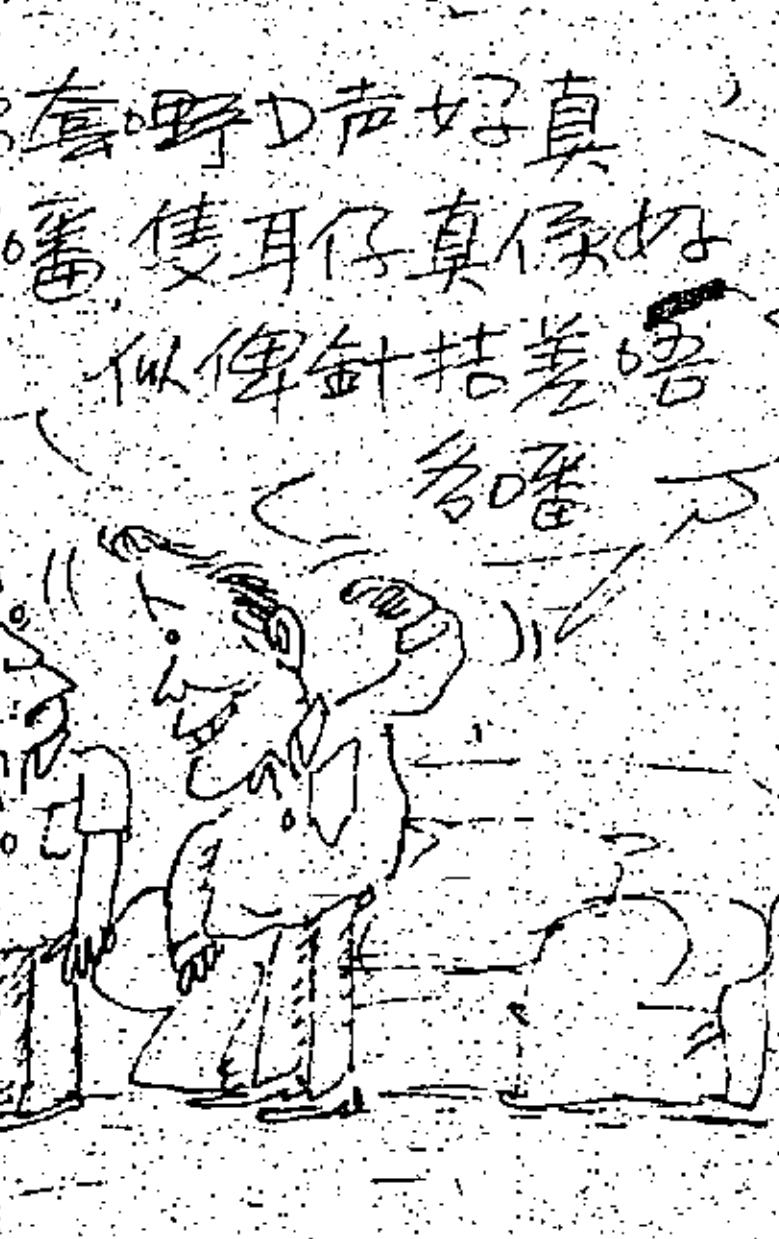 套嘢D声好真
噃,隻耳仔真係好
似俾針拮差唔
多噃